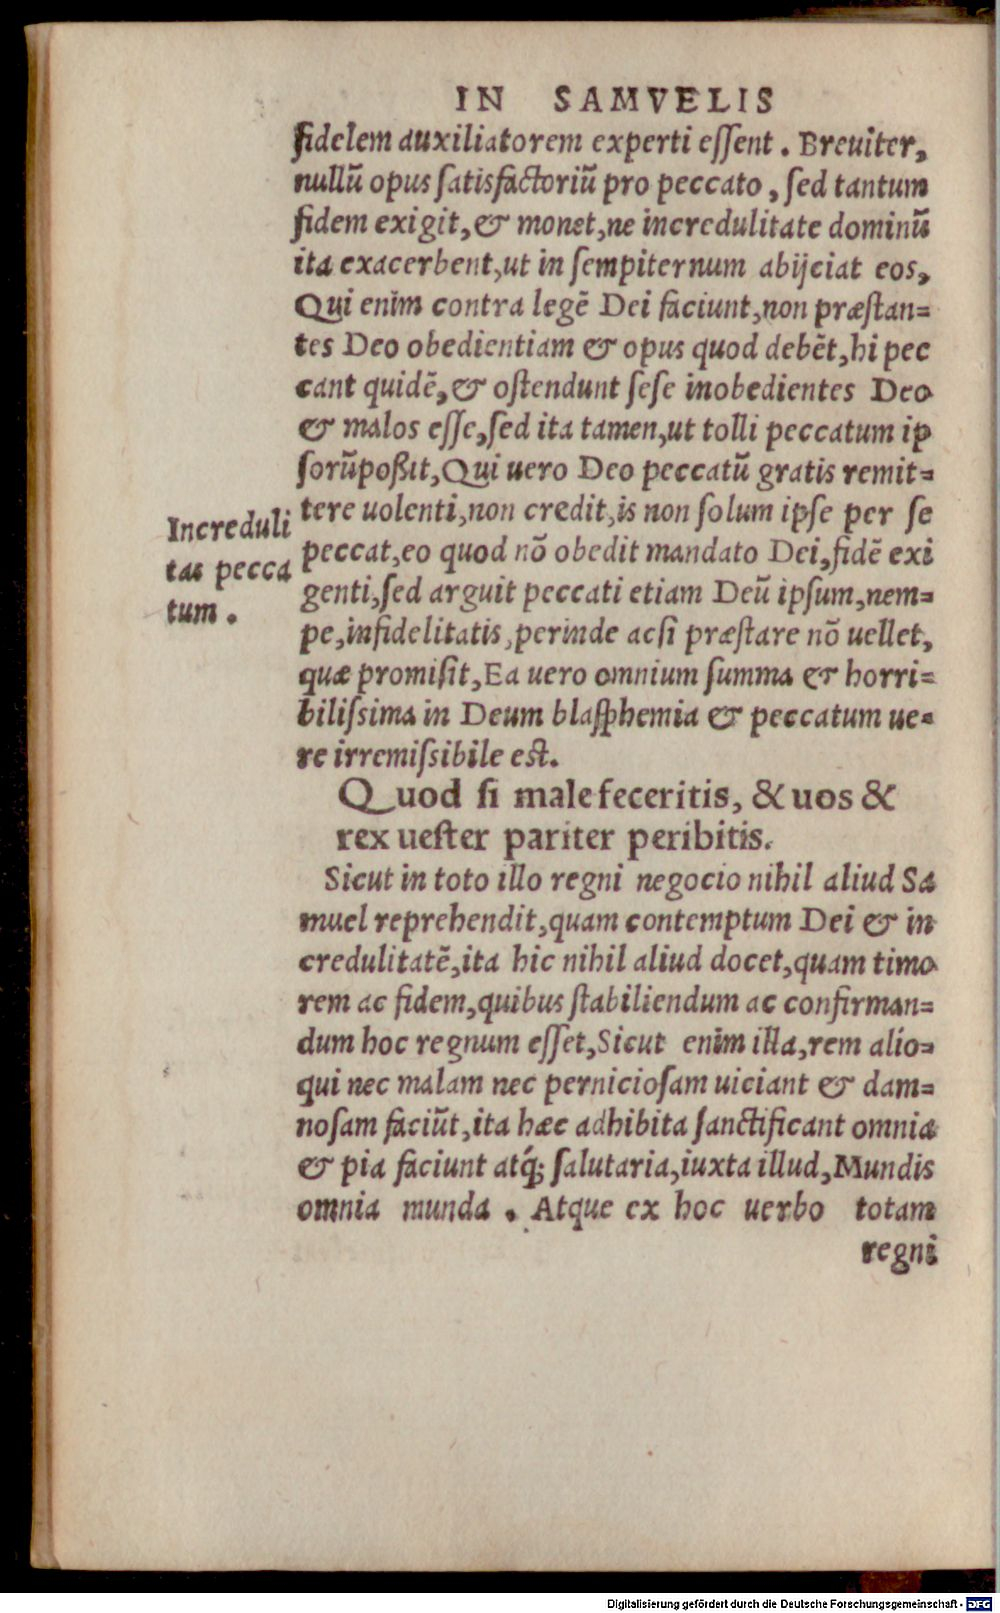 IN SAMVELIS
fidelem auxiliatorem experti essent. Breuiter,
nullũ opus satisfactoriũ pro peccato, sed tantum
fidem exigit, & monet, ne incredulitate dominũ
ita exacerbent, ut in sempiternum abijciat eos,
Qui enim contra legẽ Dei faciunt, non præstan=
tes Deo obedientiam & opus quod debẽt, hi pec
cant quidẽ, & ostendunt sese inobedientes Deo
& malos esse, sed ita tamen, ut tolli peccatum ip
sorũ poßit, Qui uero Deo peccatũ gratis remit=
tere uolenti, non credit, is non solum ipse per se
peccat, eo quod nõ obedit mandato Dei, fidẽ exi
genti, sed arguit peccati etiam Deũ ipsum, nem=
pe, infidelitatis, perinde acsi præstare nõ uellet,
quæ promisit, Ea uero omnium summa & horri=
bilissima in Deum blasphemia & peccatum ue=
re irremissibile est.
Increduli
tas pecca
tum.
Quod si male feceritis, & uos &
rex uester pariter peribitis.
Sicut in toto illo regni negocio nihil aliud Sa
muel reprehendit, quam contemptum Dei & in
credulitatẽ, ita hic nihil aliud docet, quam timo
rem ac fidem, quibus stabiliendum ac confirman=
dum hoc regnum esset, Sicut enim illa, rem alio=
qui nec malam nec perniciosam uiciant & dam=
nosam faciũt, ita hæc adhibita sanctificant omnia
& pia faciunt atq́; salutaria, iuxta illud, Mundis
omnia munda. Atque ex hoc uerbo totam
regni
Digitalisierung gefördert durch die Deutsche Forschungsgemeinschaft - DFG